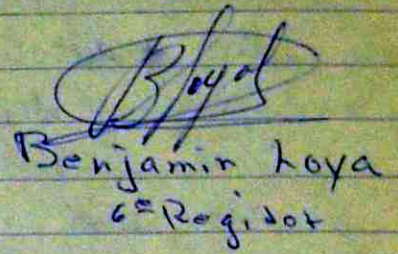 B Loya
Benjamin Loya
6º Regidor